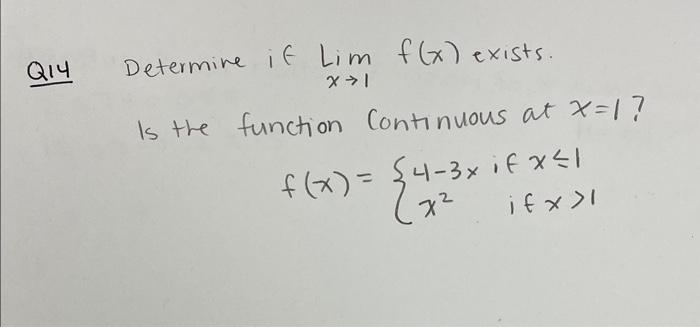 Q14 Determine if Lim f(x) exists.
x→1
Is the function Continuous at x=1?
f(x) = { 4-3x if x≤1
x² if x>1